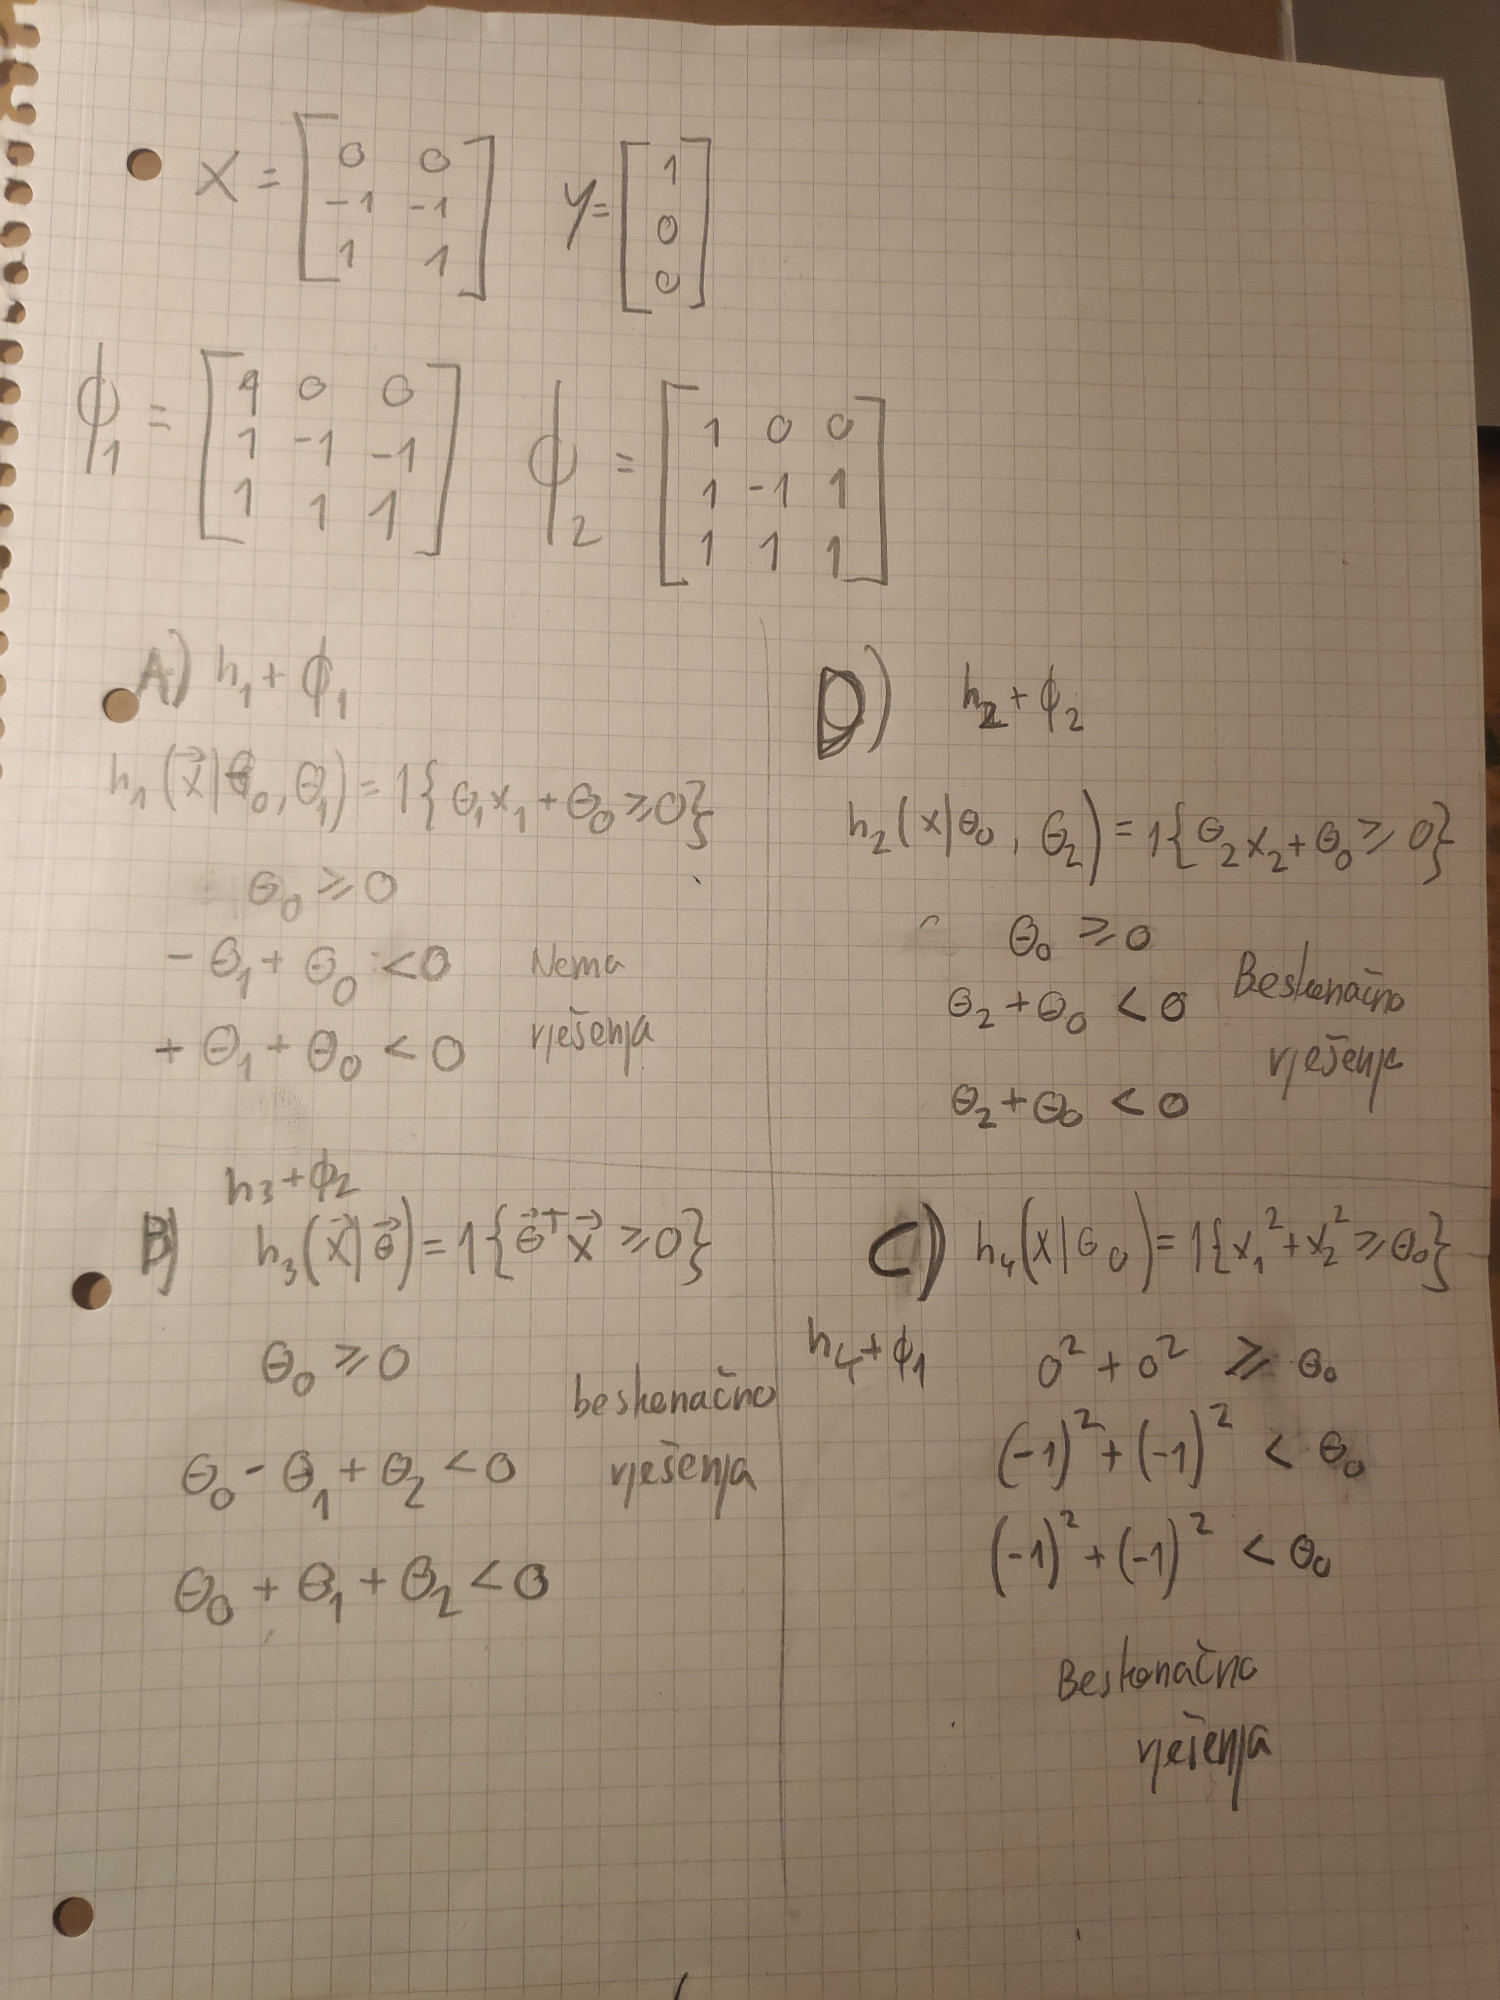 X = [ 0 0 ; -1 -1 ; 1 1 ] y = [ 1 ; 0 ; 0 ]
ϕ₁ = [ 1 0 0 ; 1 -1 -1 ; 1 1 1 ] ϕ₂ = [ 1 0 0 ; 1 -1 1 ; 1 1 1 ]
A) h₁ + ϕ₁
h₁(x⃗|θ₀, θ₁) = 1{θ₁x₁ + θ₀ ≥ 0}
θ₀ ≥ 0
- θ₁ + θ₀ < 0 Nema
+ θ₁ + θ₀ < 0 rješenja
D) h₂ + ϕ₂
h₂(x|θ₀, θ₂) = 1{θ₂x₂ + θ₀ ≥ 0}
θ₀ ≥ 0
θ₂ + θ₀ < 0 Beskonačno
rješenja
θ₂ + θ₀ < 0
h₃ + ϕ₂
B) h₃(x⃗|θ⃗) = 1{θ⃗ᵀx⃗ ≥ 0}
θ₀ ≥ 0
beskonačno
θ₀ - θ₁ + θ₂ < 0 rješenja
θ₀ + θ₁ + θ₂ < 0
C) h₄(x|θ₀) = 1{x₁² + x₂² ≥ θ₀}
h₄ + ϕ₁ 0² + 0² ≥ θ₀
(-1)² + (-1)² < θ₀
(-1)² + (-1)² < θ₀
Beskonačno
rješenja